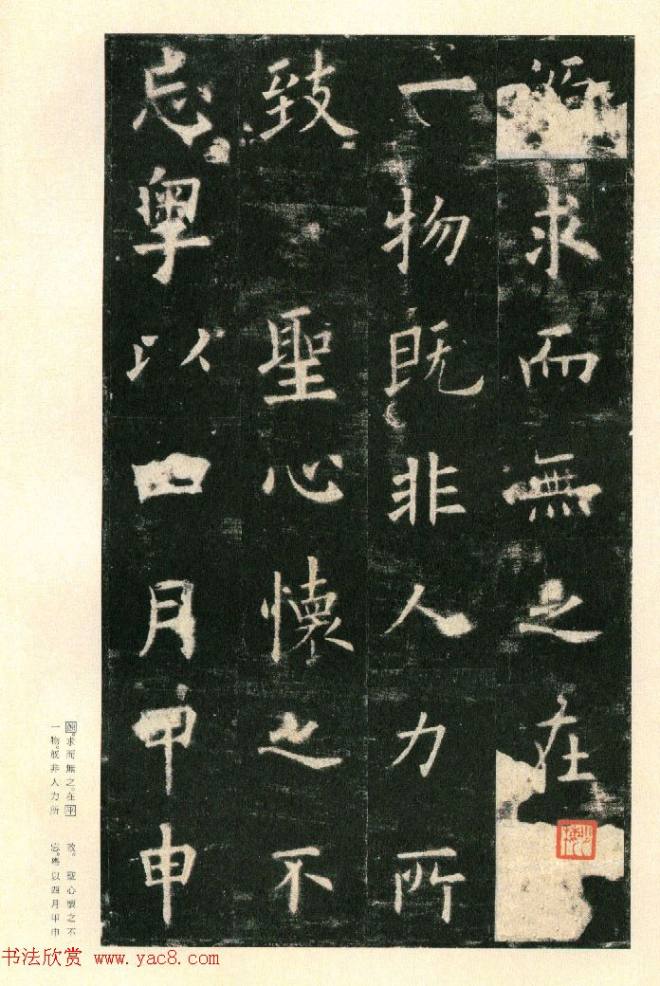 求而無之在
一物既非人力所
致聖心懷之不
忘粤以四月甲申
求而無之。在
一物。既非人力所
致。聖心懷之不
忘。粤以四月甲申
书法欣赏 www.yac8.com